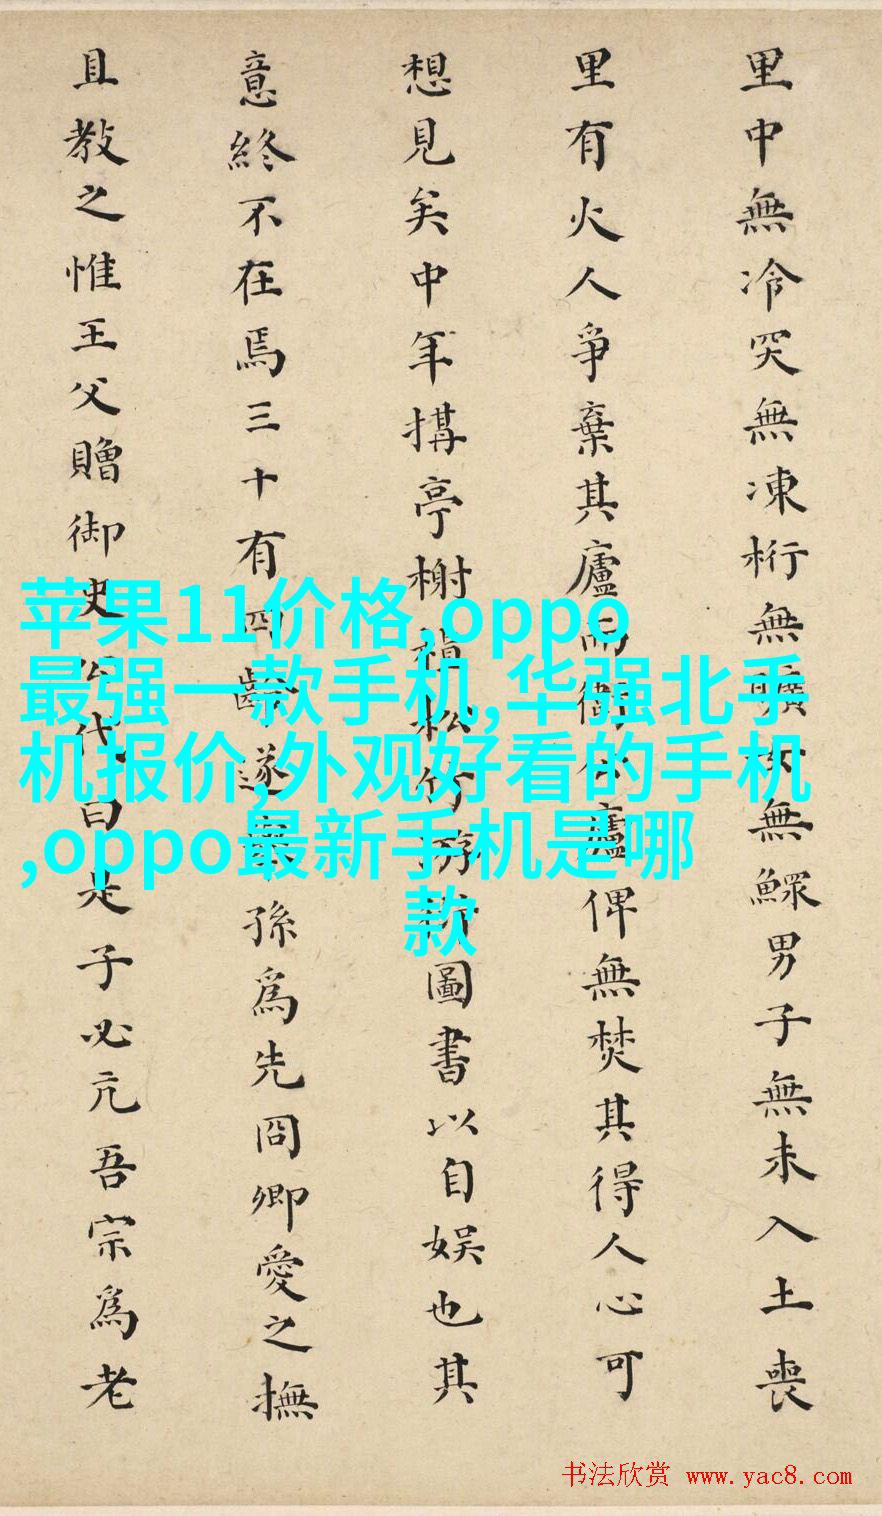 里中無冷突無凍桁無曠女無鰥男子無未入土喪
里有火人爭棄其廬而衛公廬俾無焚其得人心可
想見矣中年搆亭榭植松竹游衍圖書以自娱也其
意終不在焉三十有四齡遂 孫為先冏卿愛之撫
且教之惟王父贈御史公代曰是子必亢吾宗為老
苹果11价格,oppo
最强一款手机,华强北手
机报价,外观好看的手机
,oppo最新手机是哪
款
书法欣赏 www.yac8.com